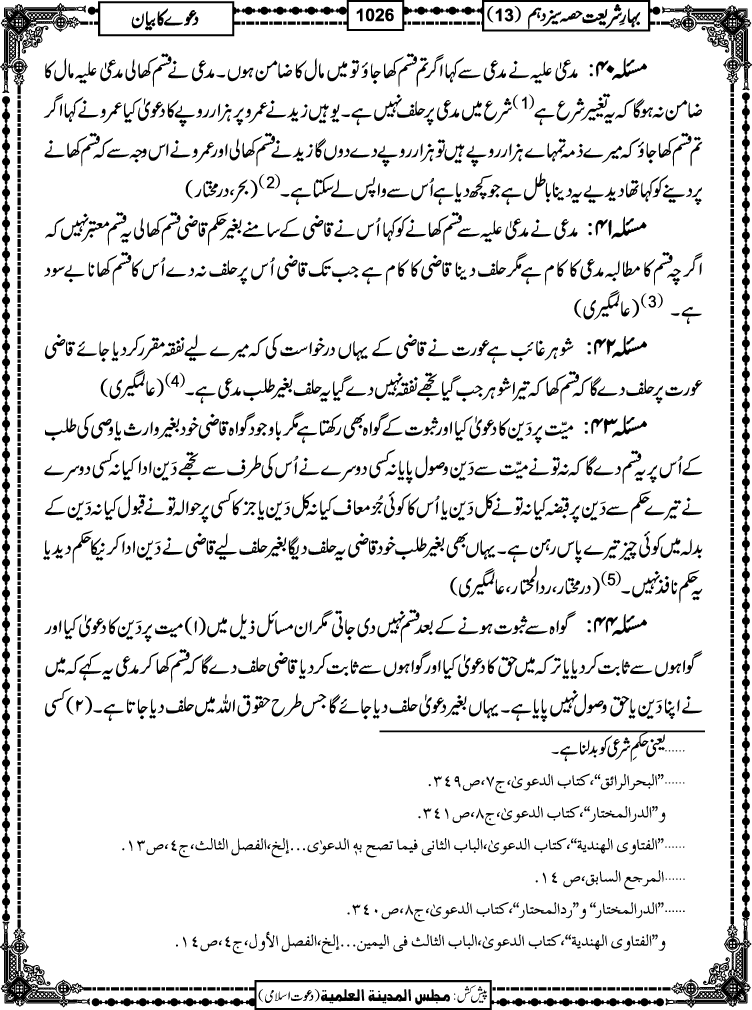 بہارِ شریعت حصہ سیزدہم (13)
1026
دعوے کا بیان
مسئلہ ۴۰: مدعیٰ علیہ نے مدعی سے کہا اگر تم قسم کھا جاؤ تو میں مال کا ضامن ہوں۔ مدعی نے قسم کھالی مدعیٰ علیہ مال کا
ضامن نہ ہوگا کہ یہ تغییر شرع ہے(1) شرع میں مدعی پر حلف نہیں ہے۔ یوہیں زید نے عمرو پر ہزار روپے کا دعویٰ کیا عمرو نے کہا اگر
تم قسم کھا جاؤ کہ میرے ذمہ تمہارے ہزار روپے ہیں تو ہزار روپے دے دوں گا زید نے قسم کھالی اور عمرو نے اس وجہ سے کہ قسم کھانے
پر دینے کو کہا تھا دیدیے یہ دینا باطل ہے جو کچھ دیا ہے اُس سے واپس لے سکتا ہے۔(2) (بحر، درمختار)
مسئلہ ۴۱: مدعی نے مدعیٰ علیہ سے قسم کھانے کو کہا اُس نے قاضی کے سامنے بغیر حکم قاضی قسم کھالی یہ قسم معتبر نہیں کہ
اگرچہ قسم کا مطالبہ مدعی کا کام ہے مگر حلف دینا قاضی کا کام ہے جب تک قاضی اُس پر حلف نہ دے اُس کا قسم کھانا بے سود
ہے۔ (3) (عالمگیری)
مسئلہ ۴۲: شوہر غائب ہے عورت نے قاضی کے یہاں درخواست کی کہ میرے لیے نفقہ مقرر کر دیا جائے قاضی
عورت پر حلف دے گا کہ قسم کھا کہ تیرا شوہر جب گیا تجھے نفقہ نہیں دے گیا یہ حلف بغیر طلب مدعی ہے۔(4) (عالمگیری)
مسئلہ ۴۳: میّت پر دَین کا دعویٰ کیا اور ثبوت کے گواہ بھی رکھتا ہے مگر باوجود گواہ قاضی خود بغیر وارث یا وصی کی طلب
کے اُس پر یہ قسم دے گا کہ نہ تونے میّت سے دَین وصول پایا نہ کسی دوسرے نے اُس کی طرف سے تجھے دَین ادا کیا نہ کسی دوسرے
نے تیرے حکم سے دَین پر قبضہ کیا نہ تونے کل دَین یا اُس کا کوئی جُز معاف کیا نہ کل دَین یا جز کا کسی پر حوالہ تونے قبول کیا نہ دَین کے
بدلہ میں کوئی چیز تیرے پاس رہن ہے۔ یہاں بھی بغیر طلب خود قاضی یہ حلف دیگا بغیر حلف لیے قاضی نے دَین ادا کرنیکا حکم دیدیا
یہ حکم نافذ نہیں۔(5) (درمختار، ردالمحتار، عالمگیری)
مسئلہ ۴۴: گواہ سے ثبوت ہونے کے بعد قسم نہیں دی جاتی مگر ان مسائل ذیل میں (۱) میت پر دَین کا دعویٰ کیا اور
گواہوں سے ثابت کر دیا یا ترکہ میں حق کا دعویٰ کیا اور گواہوں سے ثابت کر دیا قاضی حلف دے گا کہ قسم کھا کر مدعی یہ کہے کہ میں
نے اپنا دَین یا حق وصول نہیں پایا ہے۔ یہاں بغیر دعویٰ حلف دیا جائے گا جس طرح حقوق اللہ میں حلف دیا جاتا ہے۔ (۲) کسی
......یعنی حکمِ شرعی کو بدلنا ہے۔
......"البحرالرائق"، کتاب الدعویٰ، ج۷، ص۳٤۹.
و"الدرالمختار"، کتاب الدعویٰ، ج۸، ص۳٤۱.
......"الفتاوی الهندية"، کتاب الدعویٰ، الباب الثانی فیما تصح بہٖ الدعوٰی...إلخ، الفصل الثالث، ج٤، ص۱۳.
......المرجع السابق، ص ۱٤.
......"الدرالمختار" و"ردالمحتار"، کتاب الدعویٰ، ج۸، ص۳٤۰.
و"الفتاوی الهندية"، کتاب الدعویٰ، الباب الثالث فی الیمین...إلخ، الفصل الأول، ج٤، ص۱٤.
پیش کش: مجلس المدینة العلمیة (دعوت اسلامی)